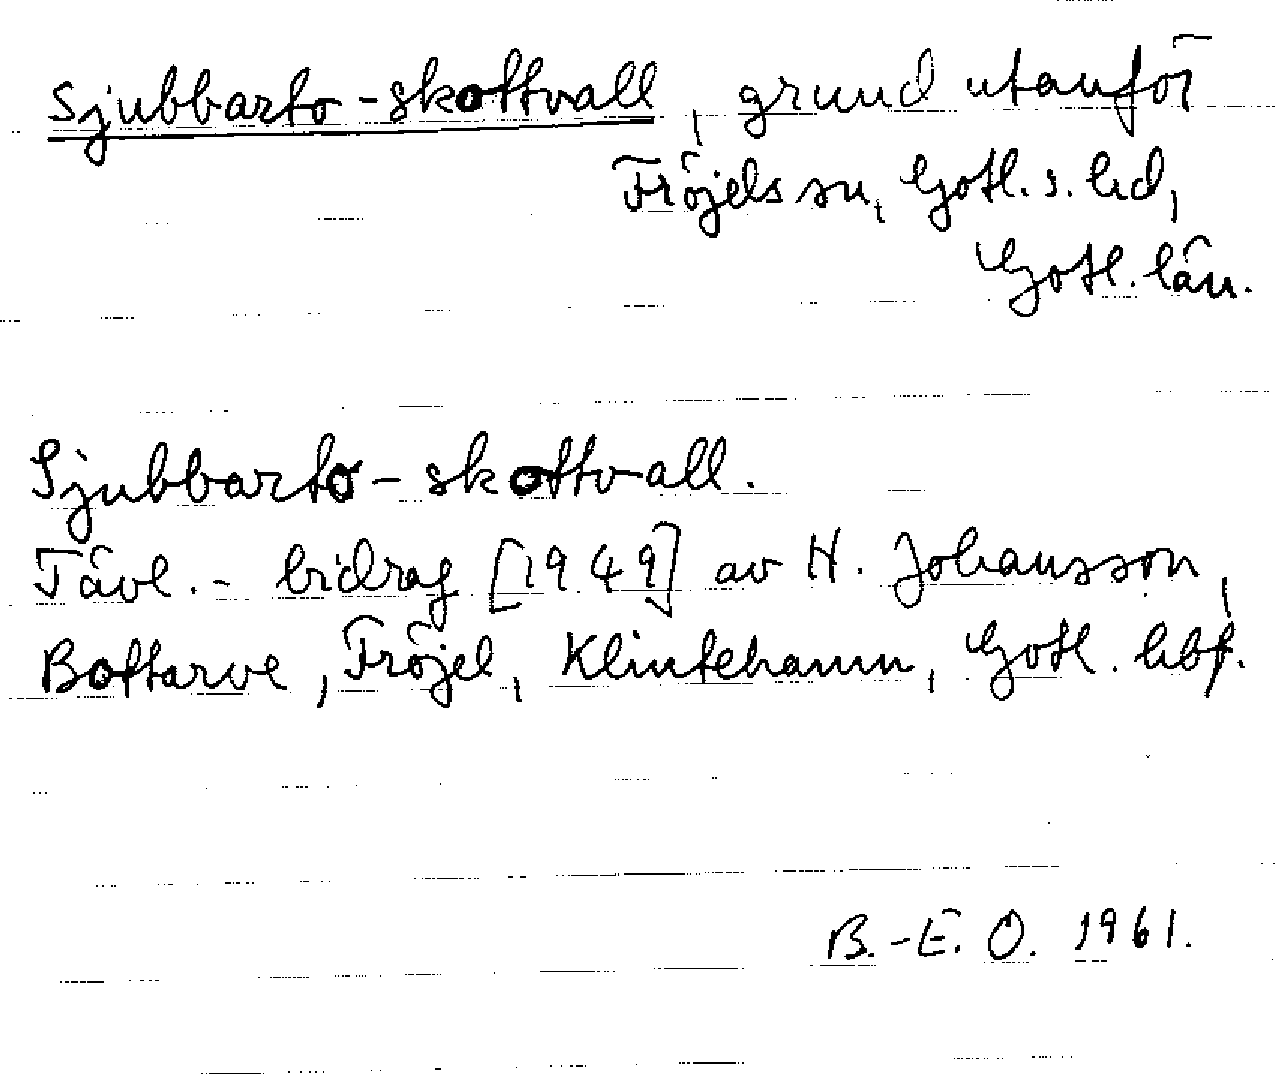 Sjubbarto-skottvall, grund utanför
Fröjels sn, Gotl. s. hd,
Gotl. län.
Sjubbarto-skottvall.
Tävl.- bidrag [1949] av H. Johansson,
Bottarve, Fröjel, Klintehamn, Gotl. hbf.
B.-E. O. 1961.